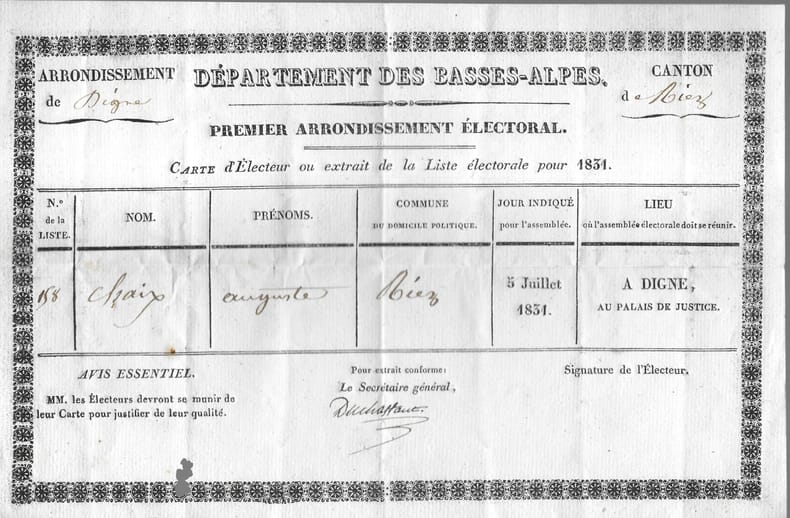 ARRONDISSEMENT
de Digne
DÉPARTEMENT DES BASSES-ALPES.
CANTON
de Riez
PREMIER ARRONDISSEMENT ÉLECTORAL.
CARTE d'Électeur ou extrait de la Liste électorale pour 1831.
N.º
de la
LISTE.
NOM.
PRÉNOMS.
COMMUNE
DU DOMICILE POLITIQUE.
JOUR INDIQUÉ
pour l'assemblée.
LIEU
où l'assemblée électorale doit se réunir.
158
Chaix
auguste
Riez
5 Juillet
1831.
A DIGNE,
AU PALAIS DE JUSTICE.
AVIS ESSENTIEL.
MM. les Électeurs devront se munir de
leur Carte pour justifier de leur qualité.
Pour extrait conforme:
Le Secrétaire général,
Duchaffaut.
Signature de l'Électeur.